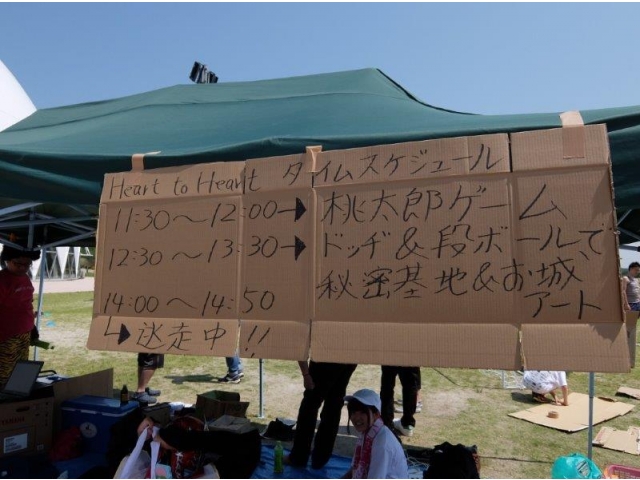 Heart to Heart タイムスケジュール
11:30～12:00→桃太郎ゲーム
12:30～13:30→ドッヂ&段ボールで、
秘密基地&お城、
アート
14:00～14:50
↳逃走中!!